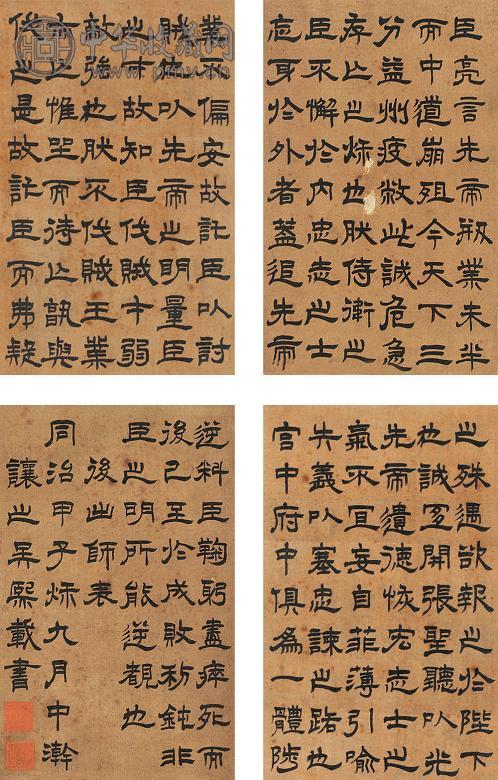 臣亮言先帝剏業未半
而中道崩殂今天下三
分益州疲敝此誠危急
存亡之秌也然侍衛之
臣不懈於內忠志之士
忘身於外者蓋追先帝
之殊遇欲報之於陛下
也誠宜開張聖聽以光
先帝遺德恢宏志士之
氣不宜妄自菲薄引喻
失義以塞忠諫之路也
宮中府中俱為一體陟
業不偏安故託臣以討
賊也以先帝之明量臣
之才故知臣伐賊才弱
敵強也然不伐賊王業
亦亡惟坐而待亡孰與
伐之是故託臣而弗疑
逆料臣鞠躬盡瘁死而
後已至於成敗利鈍非
臣之明所能逆覩也
後出師表
同治甲子秌九月中澣
讓之吳熙載書
中华收藏网